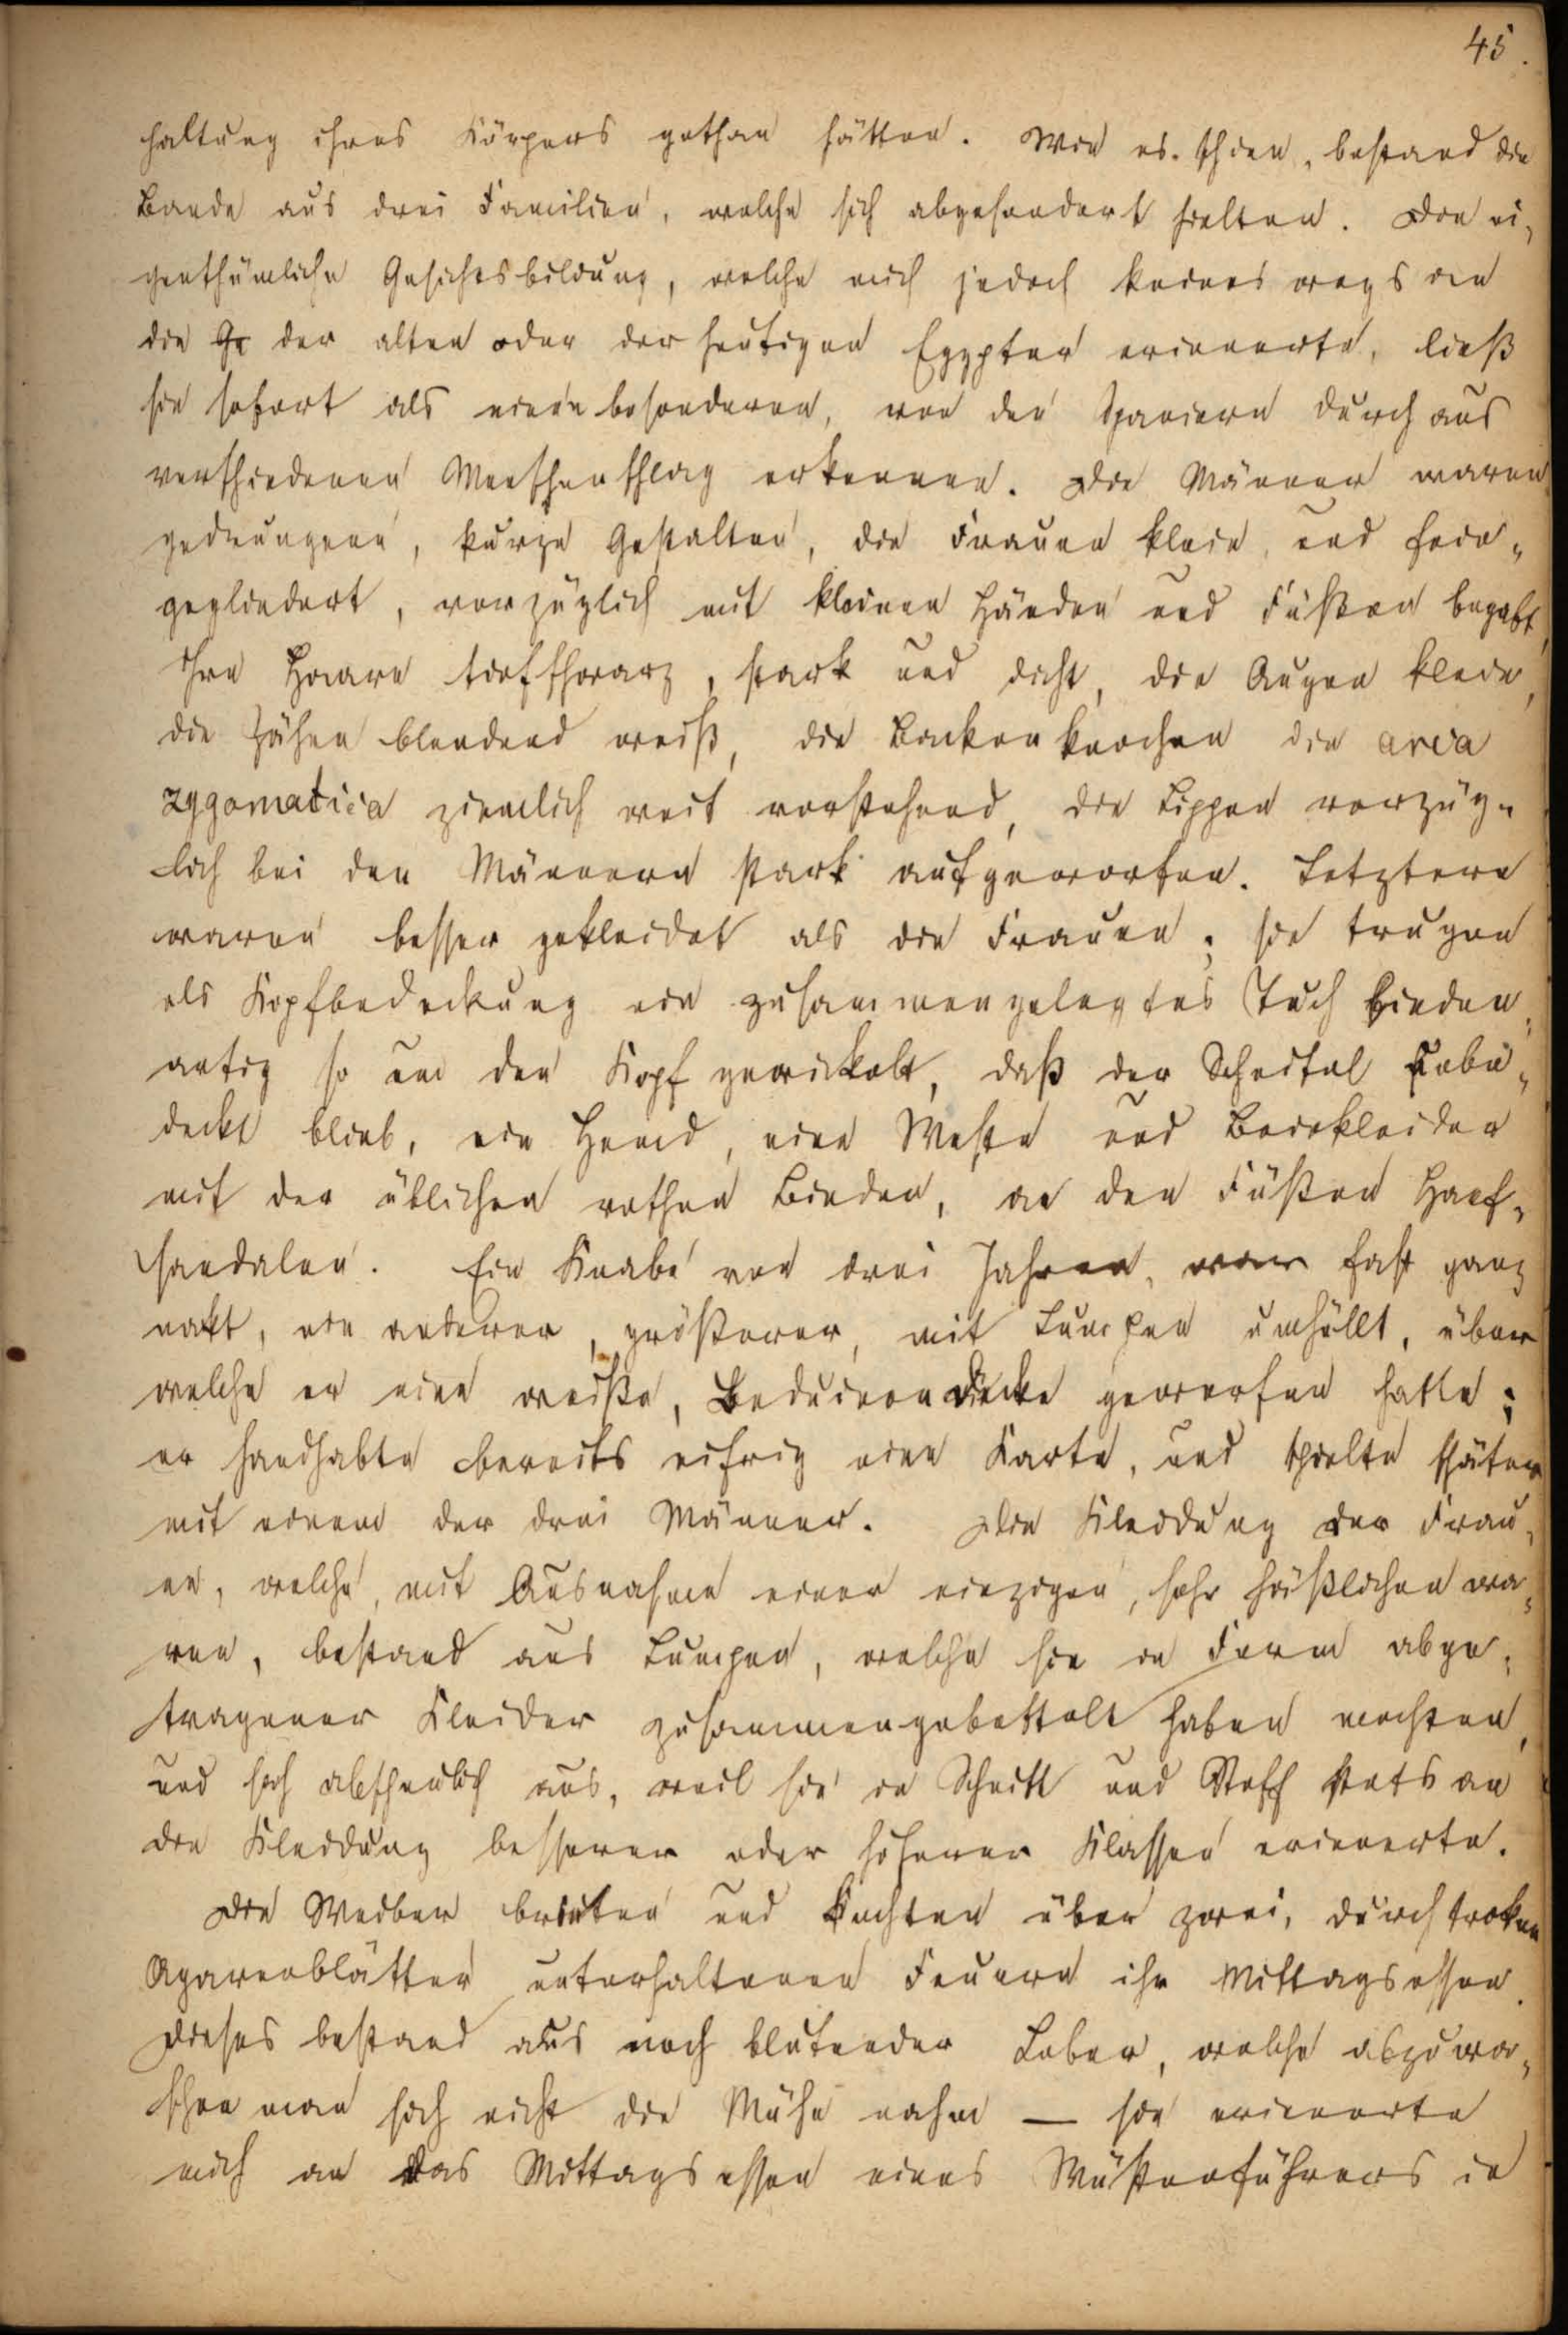 45.
haltung ihres Körpers gethan hätten. Wie es schien, bestand die
Bande aus drei Familien, welche sich abgesondert hielten. Die ei-
genthümliche Gesichtsbildung, welche mich jedoch keineswegs an
die Ge der alten oder der heutigen Egypter erinnerte, ließ
sie sofort als einen besonderen, von den Spaniern durchaus
verschiedenen Menschenschlag erkennen. Die Männer waren
gedrungene, kurze Gestalten, die Frauen klein, und fein-
gegliedert, vorzüglich mit kleinen Händen und Füßen begabt,
Ihre Haare tiefschwarz, stark und dicht, die Augen klein,
die Zähne blendend weiß, die Backenknochen die area
zygomatica ziemlich weit vorstehend, die Lippen vorzüg-
lich bei den Männern stark aufgeworfen. Letztere
waren besser gekleidet als die Frauen; sie trugen
als Kopfbedeckung ein zusammengelegtes Tuch binden-
artig so um den Kopf gewickelt, daß der Scheitel unbe-
deckt blieb, ein Hemd, eine Weste und Beinkleider
mit der üblichen rothen Binden, an den Füßen Hanf-
sandalen. Ein Knabe von drei Jahren, war fast ganz
nakt, ein anderer, größerer, mit Lumpen umhüllt, über
welche er eine weiße, Beduinendecke geworfen hatte;
er handhabte bereits eifrig eine Karte, und spielte später
mit einem der drei Männer. Die Kleidung der Frau-
en, welche, mit Ausnahme einer einzigen, sehr häßlichen wa-
ren, bestand aus Lumpen, welche sie in Form abge-
tragener Kleider zusammengebettelt haben mochten,
und sah abscheulich aus, weil sie in Schnitt und Stoff stets an
die Kleidung besserer oder höherer Klassen erinnerte.
Die Weiber brieten und kochten über zwei, durch trokne
Agavenblätter unterhaltenen Feuern ihr Mittagsessen.
Dieses bestand aus noch blutender Leber, welche abzuwa-
schen man sich nicht die Mühe nahm — sie erinnerte
mich an das Mittagsessen eines Wüstenführers in